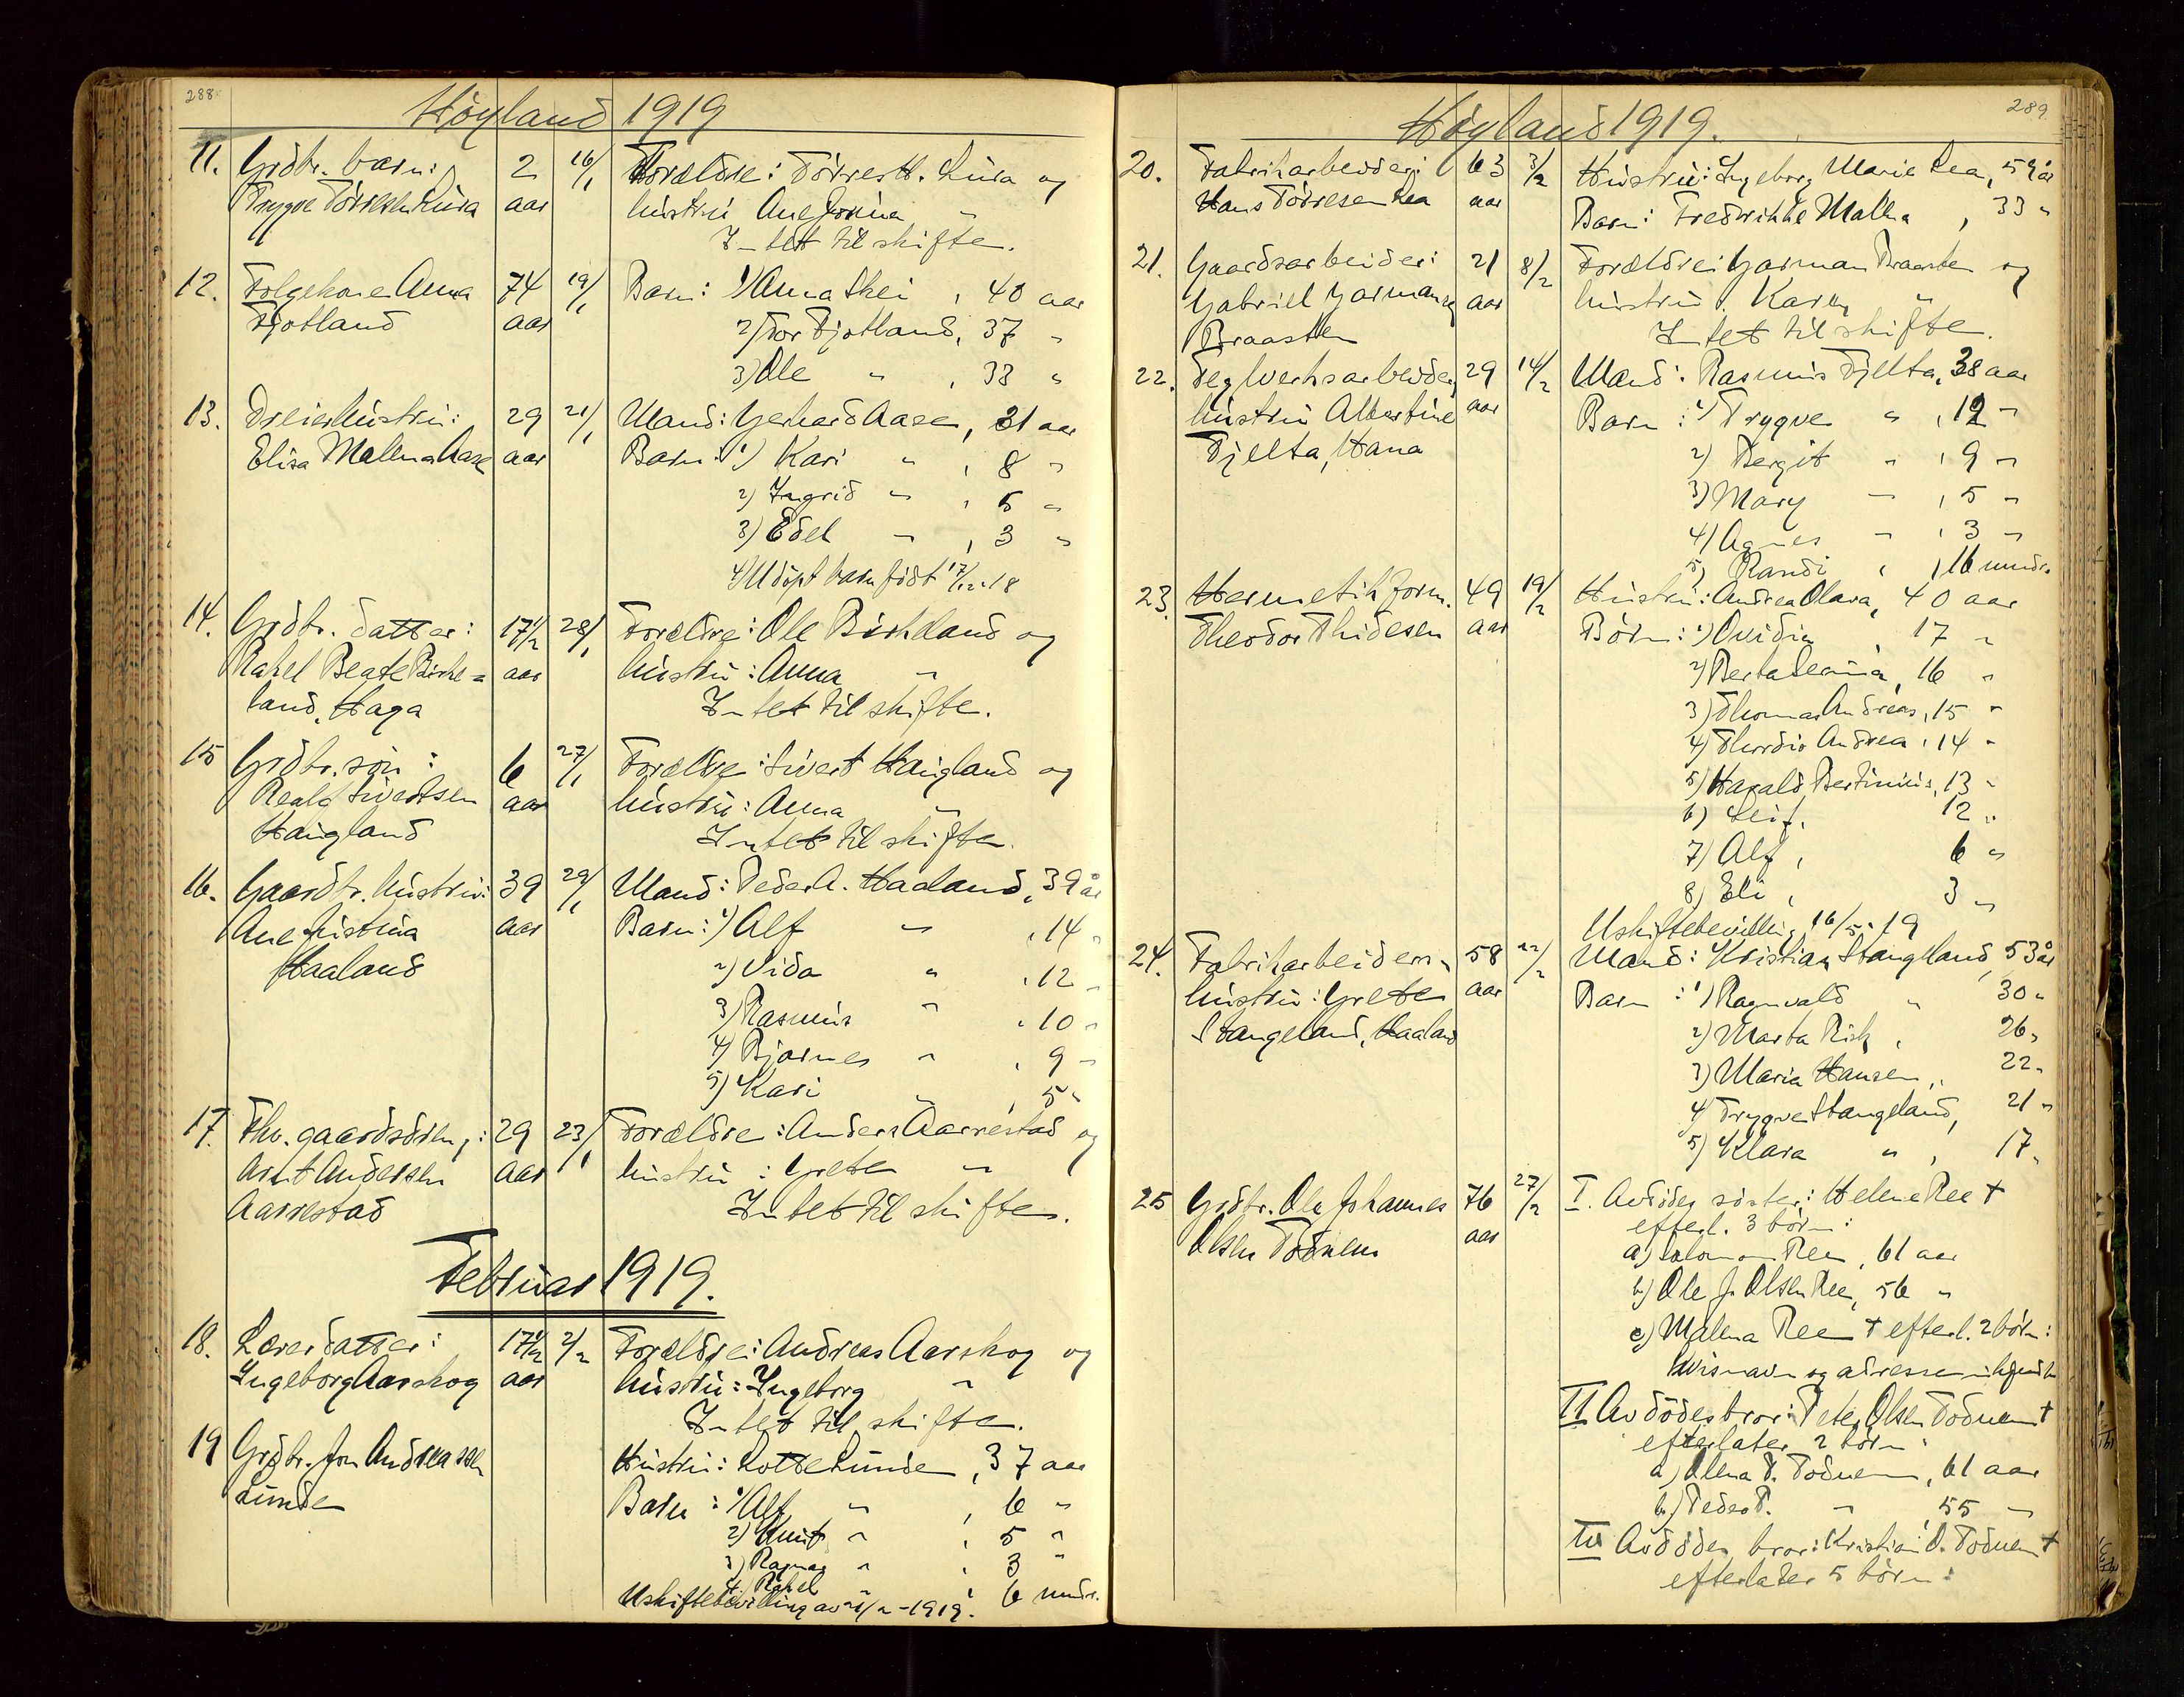 288
Höyland 1919
11. Grdbr. barn: 2 16/1 Forældre: Törres H. Lura og
Trygve Törresen Lura aar hustru Ane Jonina "
Intet til skifte.
12. Folgekone Anna 74 19/1 Barn: 1) Anna Skei , 40 aar
Fjotland aar 2) Tor Fjotland, 37 "
3) Ole " , 33 "
13. Dreierhustru: 29 21/1 Mand: Gerhard Aase, 31 aar
Elisa Malena Aase aar Barn: 1) Kari " , 8 "
2) Ingrid " , 5 "
3) Edel " , 3 "
4) Udöpt barn födt 17/12-18
14. Grdbr. datter: 17 1/2 28/1 Forældre: Ole Birkeland og
Rakel Beate Birke= aar hustru: Anna "
land, Haga Intet til skifte.
15 Grdbr. sön: 6 27/1 Forældre: Sivert Haugland og
Realf Sivertsen aar hustru: Anna "
Haugland Intet til skifte.
16. Gaardbr. hustru: 39 29/1 Mand: Peder A. Haaland, 39 år
Ane Justina aar Barn: 1) Alf " , 14 "
Haaland 2) Vida " , 12 "
3) Rasmus " , 10 "
4) Bjarnes " , 9 "
5) Kari " , 5 "
17. Fhv. gaardsdreng: 29 23/1 Forældre: Anders Aarrestad og
Arnt Andersen aar hustru: Grete "
Aarrestad Intet til skifte.
Februar 1919.
18. Lærerdatter: 17 1/2 2/2 Forældre: Andreas Aarskog og
Ingeborg Aarskog aar hustru: Ingeborg "
Intet til skifte.
19 Grdbr. Jon Andreassen Hustru: Lotte Lunde, 37 aar
Lunde Barn: 1) Alf " , 6 "
2) Knut " , 5 "
3) Ragnar " , 3 "
4) Rakel , 6 mndr.
Uskiftebevilling av /2-1919.
289
Höyland 1919.
20. Fabrikarbeider: 63 3/2 Hustru: Ingeborg Marie Lea, 59 år
Hans Törresen Lea aar Barn: Fredrikke Malena , 33 "
21. Gaardsarbeider: 21 8/2 Forældre: Garman Braasten og
Gabriel Garmanng aar hustru: Karen "
Braasten Intet til skifte.
22. Teglverksarbeider 29 14/2 Mand: Rasmus Fjelta, 38 aar
hustru Albertine aar Barn: 1) Trygve " , 12 "
Fjelta, Hana 2) Bergit " , 9 "
3) Mary " , 5 "
4) Agnes " , 3 "
5) Randi , 16 mndr.
23. Hermetikform. 49 19/2 Hustru: Andrea Olava, 40 aar
Theodor Thidesen aar Börn: 1) Ovidia 17 "
2) Berta Serina, 16 "
3) Thomas Andreas, 15 "
4) Thordis Andrea, 14 "
5) Harald Bertinius, 13 "
6) Leif, 12 "
7) Alf, 6 "
8) Eli, 3 "
Uskiftebevilling 16/5-19
24. Fabrikarbeiders 58 22/2 Mand: Kristian Stangeland, 53 år
hustru: Grete aar Barn: 1) Ragnvald " 30 "
Stangeland, Haaland 2) Marta Risk, 26 "
3) Maria Hansen, 22 "
4) Trygve Stangeland, 21 "
5) Klara " , 17 "
25 Grdbr. Ole Johannes 76 27/2 I. Avdödes söster: Helene Ree †
Olsen Todnem aar efterl. 3 börn:
a) Salomon Ree, 61 aar
b) Ole J. Olsen Ree, 56 "
c) Malena Ree † efterl. 2 börn:
hvis navn og adresse er ubekjendt
II Avdödes bror: Peter Olsen Todnem †
efterlater 2 börn:
a) Olena P. Todnem, 61 aar
b) Peder P. " , 55 "
III Avdödes bror: Kristian O. Todnem †
efterlater 5 börn: